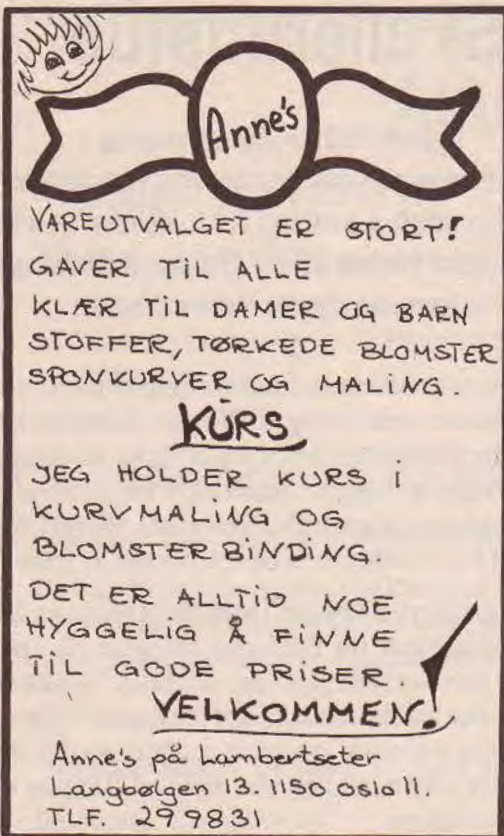 Anne's
VAREUTVALGET ER STORT!
GAVER TIL ALLE
KLÆR TIL DAMER OG BARN
STOFFER, TØRKEDE BLOMSTER
SPONKURVER OG MALING.
KURS
JEG HOLDER KURS I
KURVMALING OG
BLOMSTERBINDING.
DET ER ALLTID NOE
HYGGELIG Å FINNE
TIL GODE PRISER.
VELKOMMEN!
Anne's på Lambertseter
Langbølgen 13. 1150 Oslo 11.
TLF. 299831